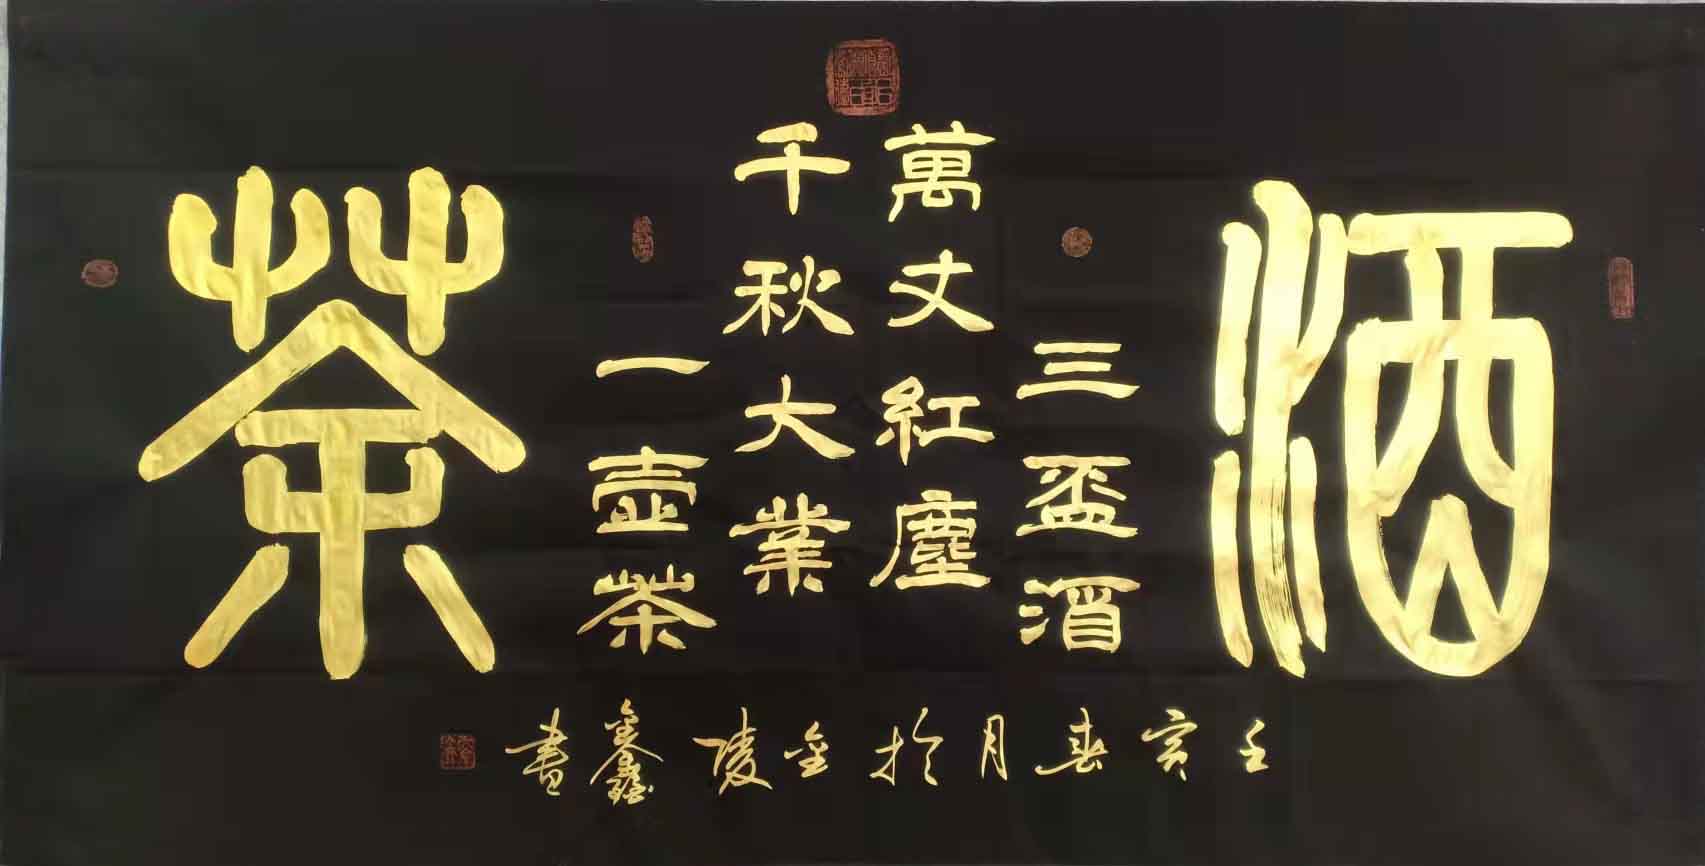 酒
三盃酒
萬丈紅塵
千秋大業
一壺茶
茶
壬寅春月於金陵鑫書